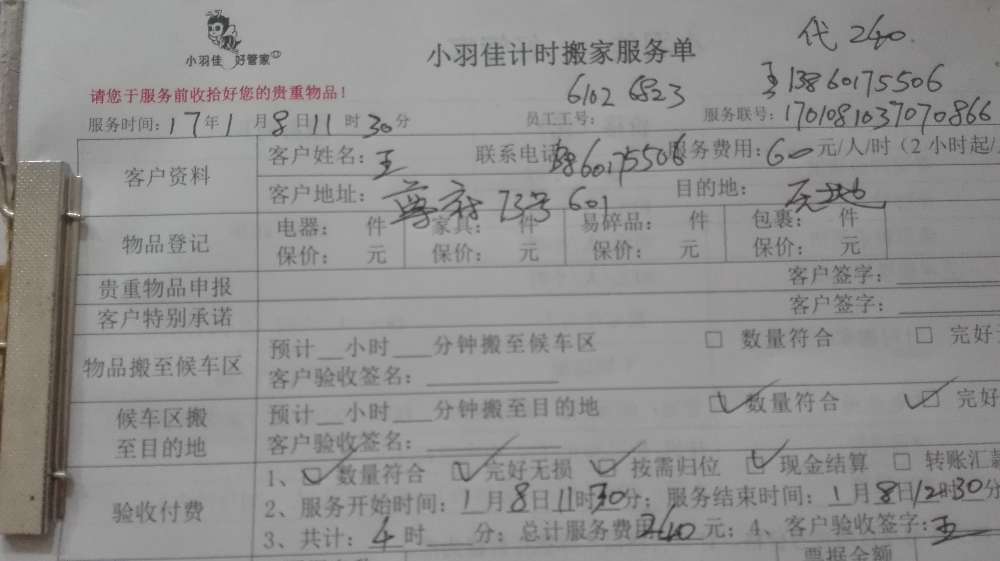 小羽佳 好管家
小羽佳计时搬家服务单
代 240.
王 13860175506
请您于服务前收拾好您的贵重物品!
6102 6823
服务时间: 17 年 1 月 8 日 11 时 30 分 员工工号: 服务联号: 1701081037070866
客户资料
客户姓名: 王 联系电话 13860175506 服务费用: 60 元/人/时(2小时起/
客户地址: 尊府 73号 601 目的地: 原地
物品登记
电器: 件 家具: 件 易碎品: 件 包裹: 件
保价: 元 保价: 元 保价: 元 保价: 元
贵重物品申报 客户签字:
客户特别承诺 客户签字:
物品搬至候车区
预计__小时___分钟搬至候车区 □ 数量符合 □ 完好
客户验收签名:
候车区搬
至目的地
预计__小时___分钟搬至目的地 ☑ 数量符合 ☑ 完好
客户验收签名:
验收付费
1、☑ 数量符合 ☑ 完好无损 ☑ 按需归位 ☑ 现金结算 □ 转账汇
2、服务开始时间: 1 月 8 日 11 时 30 分; 服务结束时间: 1 月 8 日 12 时 30 分
3、共计: 4 时 分; 总计服务费用 240 元; 4、客户验收签字: 王
票据金额